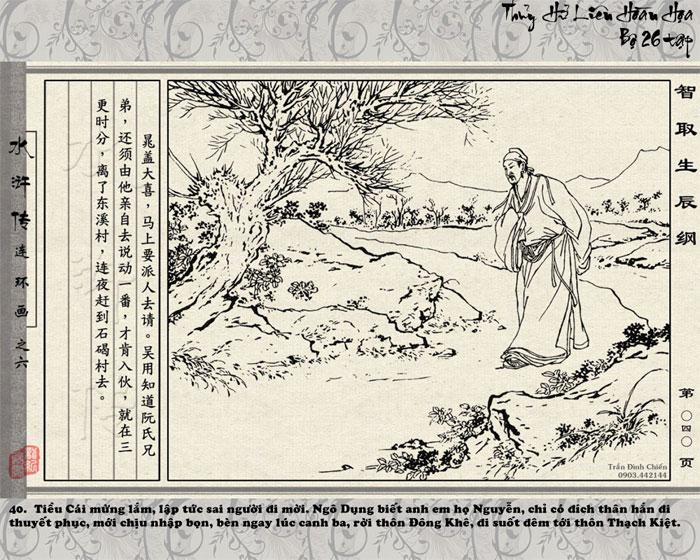 Thủy Hử Liên Hoàn Họa
Bộ 26 tập
智取生辰纲
第〇四〇页
晁盖大喜，马上要派人去请。吴用知道阮氏兄
弟，还须由他亲自去说动一番，才肯入伙，就在三
更时分，离了东溪村，连夜赶到石碣村去。
水浒传连环画之六
Trần Đình Chiến
0903.442144
40. Tiều Cái mừng lắm, lập tức sai người đi mời. Ngô Dụng biết anh em họ Nguyễn, chỉ có đích thân hắn đi
thuyết phục, mới chịu nhập bọn, bèn ngay lúc canh ba, rời thôn Đông Khê, đi suốt đêm tới thôn Thạch Kiệt.